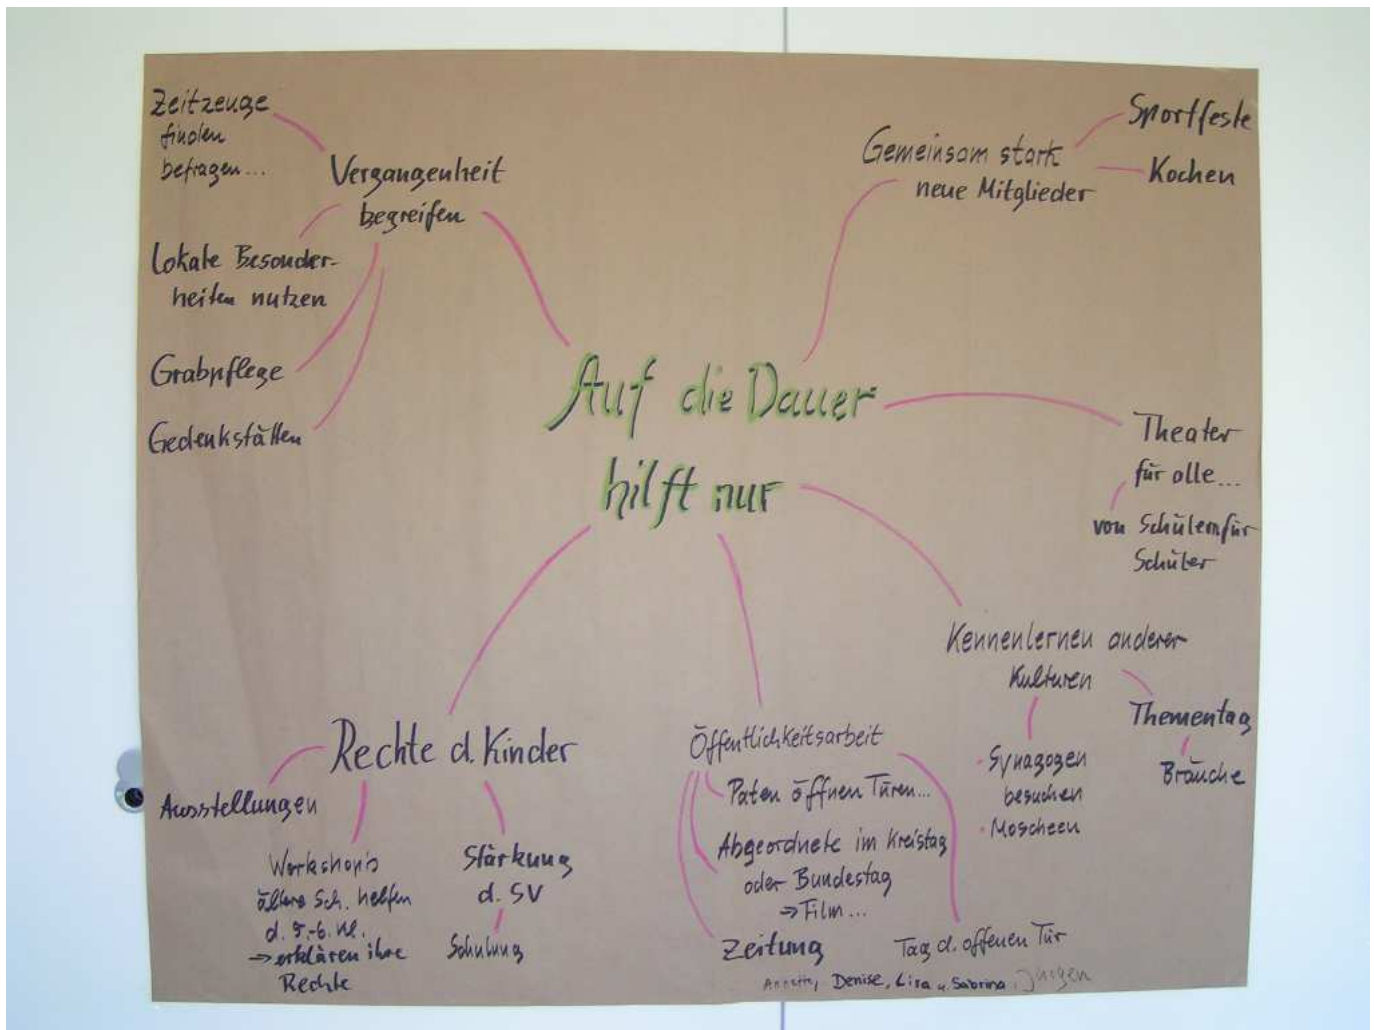 Zeitzeuge
finden
befragen...
Vergangenheit
begreifen
Lokale Besonder-
heiten nutzen
Grabpflege
Gedenkstätten
Gemeinsam stark
neue Mitglieder
Sportfeste
Kochen
Auf die Dauer
hilft nur
Theater
für alle...
von Schülern für
Schüler
Kennenlernen anderer
Kulturen
Thementag
Bräuche
• Synagogen
besuchen
• Moscheen
Rechte d. Kinder
Ausstellungen
Workshops
ältere Sch. helfen
d. 5.-6. Kl.
⇒ erklären ihre
Rechte
Stärkung
d. SV
Schulung
Öffentlichkeitsarbeit
Paten öffnen Türen...
Abgeordnete im Kreistag
oder Bundestag
⇒ Film...
Zeitung
Tag d. offenen Tür
Annette, Denise, Lisa u. Sabrina, Jürgen